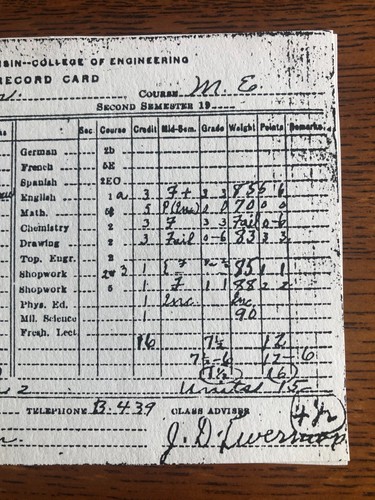 SIN--COLLEGE OF ENGINEERING
RECORD CARD
COURSE M. E
SECOND SEMESTER 19
Sec. Course Credit Mid-Sem. Grade Weight Points Remarks
German 2b
French 5E
Spanish 2EO
English 1 a 3 F+ 3 3 85 6
Math. 5 0 0 70 0 0
Chemistry 2 3 F 3 3 Fail 0-6
Drawing 2 3 Fail 0-6 83 3 3
Top. Engr. 2
Shopwork 2 3 1 85 1 1
Shopwork 5 1 F 1 1 88 2 2
Phys. Ed. 1 Inc. Inc.
Mil. Science 1 90
Fresh. Lect.
16 7½ 12
7½-6 12-6
1½ 6
2 Units 15
TELEPHONE B.439 CLASS ADVISER
4 yr
J. D.